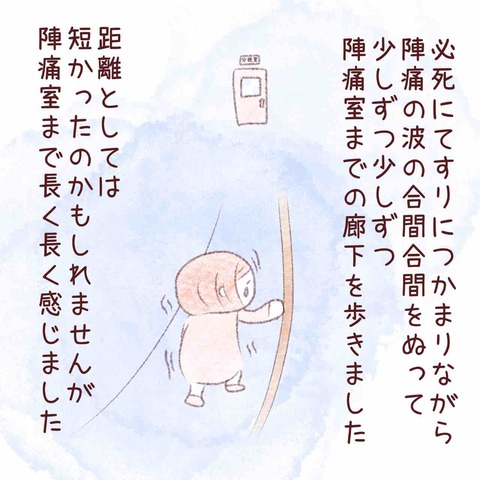 必死にてすりにつかまりながら
陣痛の波の合間合間をぬって
少しずつ少しずつ
陣痛室までの廊下を歩きました
距離としては
短かったのかもしれませんが
陣痛室まで長く長く感じました